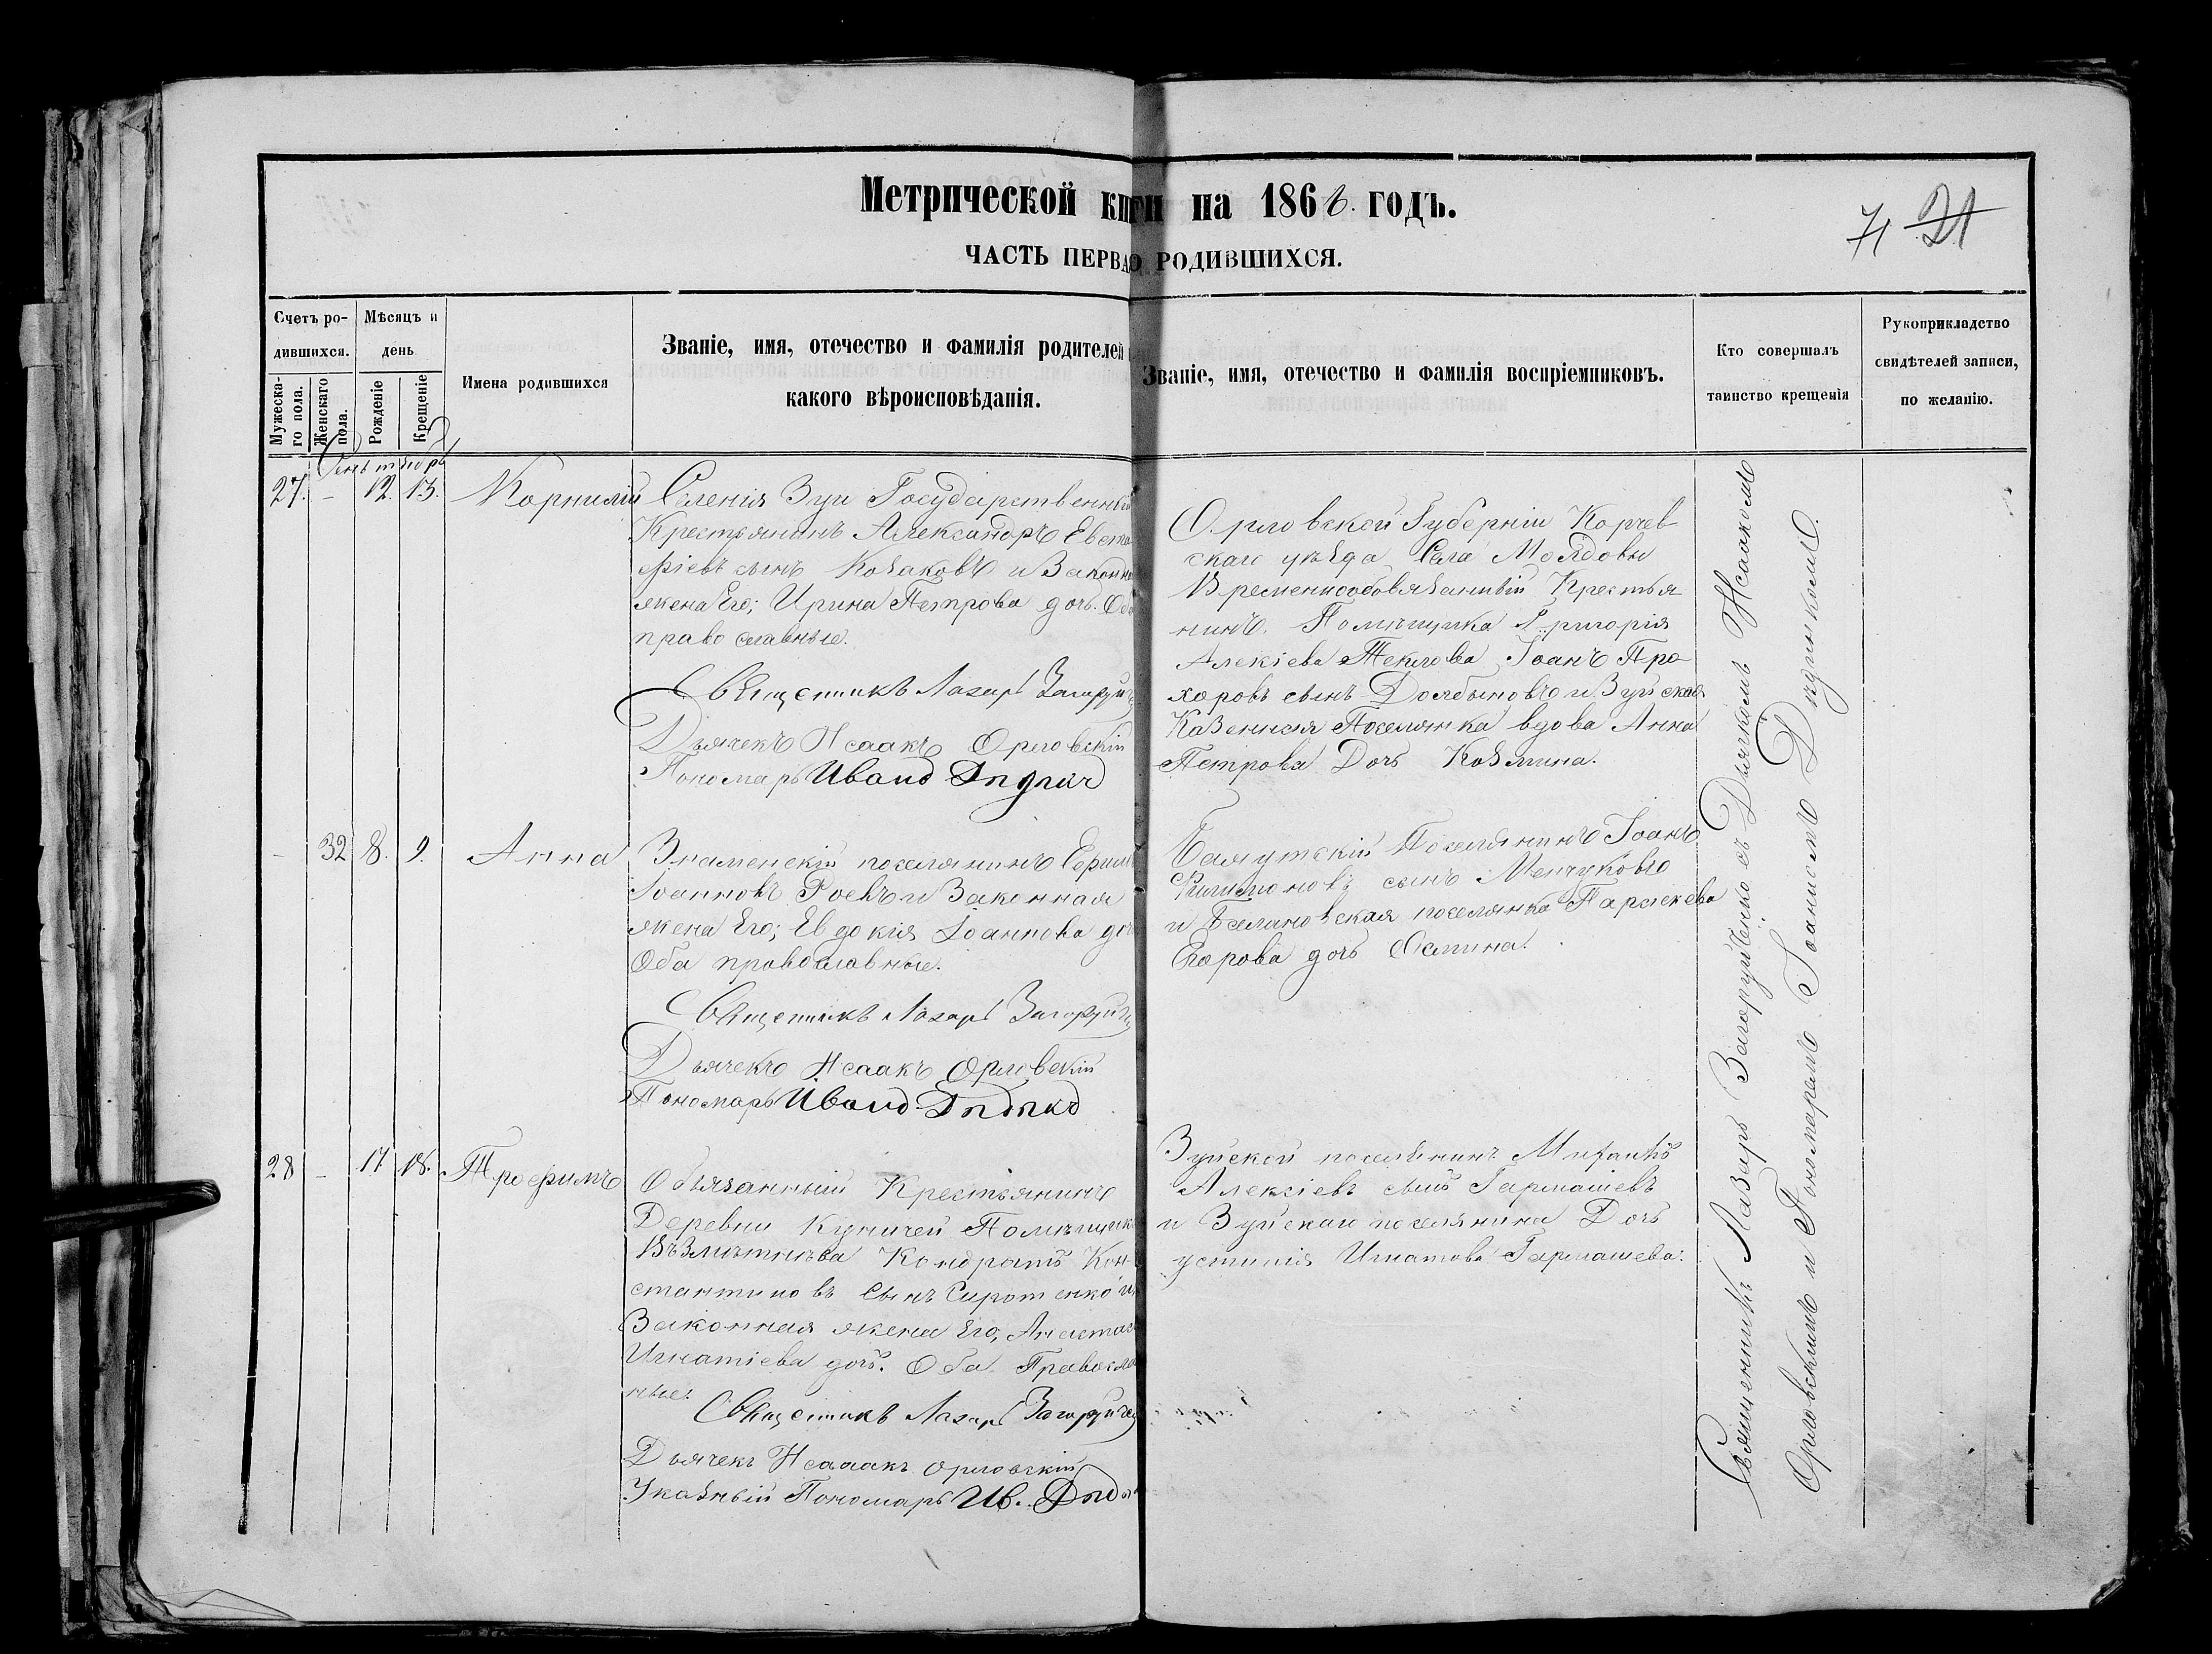 Метрической книги на 186 годъ.
71 21
ЧАСТЬ ПЕРВАЯ О РОДИВШИХСЯ.
Счетъ ро-
дившихся.
Мужеска-
го пола.
Женскаго
пола.
Мѣсяцъ и
день
Рожденіе
Крещеніе
Имена родившихся
Званіе, имя, отечество и фамилія родителей и
какого вѣроисповѣданія.
Званіе, имя, отечество и фамилія воспріемниковъ.
Кто совершалъ
таинство крещенія
Рукоприкладство
свидѣтелей записи,
по желанію.
Сентябрь
27. – 12. 13. Корнилій
Селенія Зуи Государственный
Крестьянинъ Александръ Евста
фіевъ сынъ Козаковъ и Законная
жена Его; Ирина Петрова дочь. Оба
православные.
Священникъ Лазарь
Дьячекъ Исаакъ Орловскій
Пономарь Иванъ
Орловской Губерніи
скаго уѣзда Села
Временнообязанный Крестья
нинъ. Помѣщика Григорія
Алексіева Іоанъ Про
хоровъ сынъ и Зуйская
Казенная Поселянка вдова Анна
Петрова Дочь Козмина.
– 32 8. 9. Анна
Знаменскій поселянинъ Ефимъ
Іоанновъ и Законная
жена Его; Евдокія Іоаннова дочь
Оба православные.
Священникъ Лазарь
Дьячекъ Исаакъ Орловскій
Пономарь Иванъ
Поселянинъ Іоанъ
Филимоновъ сынъ
и поселянка Параскева
Егорова дочь
28 – 17 18. Трофимъ
Обязанный Крестьянинъ
Деревни Помѣщика
Кондратъ Кон-
стантиновъ Сынъ Сиротенко и
Законная жена Его, Анастасія
Игнатіева дочь. Оба Православ
ные.
Священникъ Лазарь
Дьячекъ Исааакъ Орловскій
Указный Пономарь Ив.
Зуйской поселянинъ
Алексіевъ сынъ Гармашевъ
и Зуйскаго поселянина Дочь
устинія Игнатова Гармашева.
Священникъ Лазарь съ Дьячкомъ Исаакомъ
Орловскимъ и Пономаремъ Іоанномъ